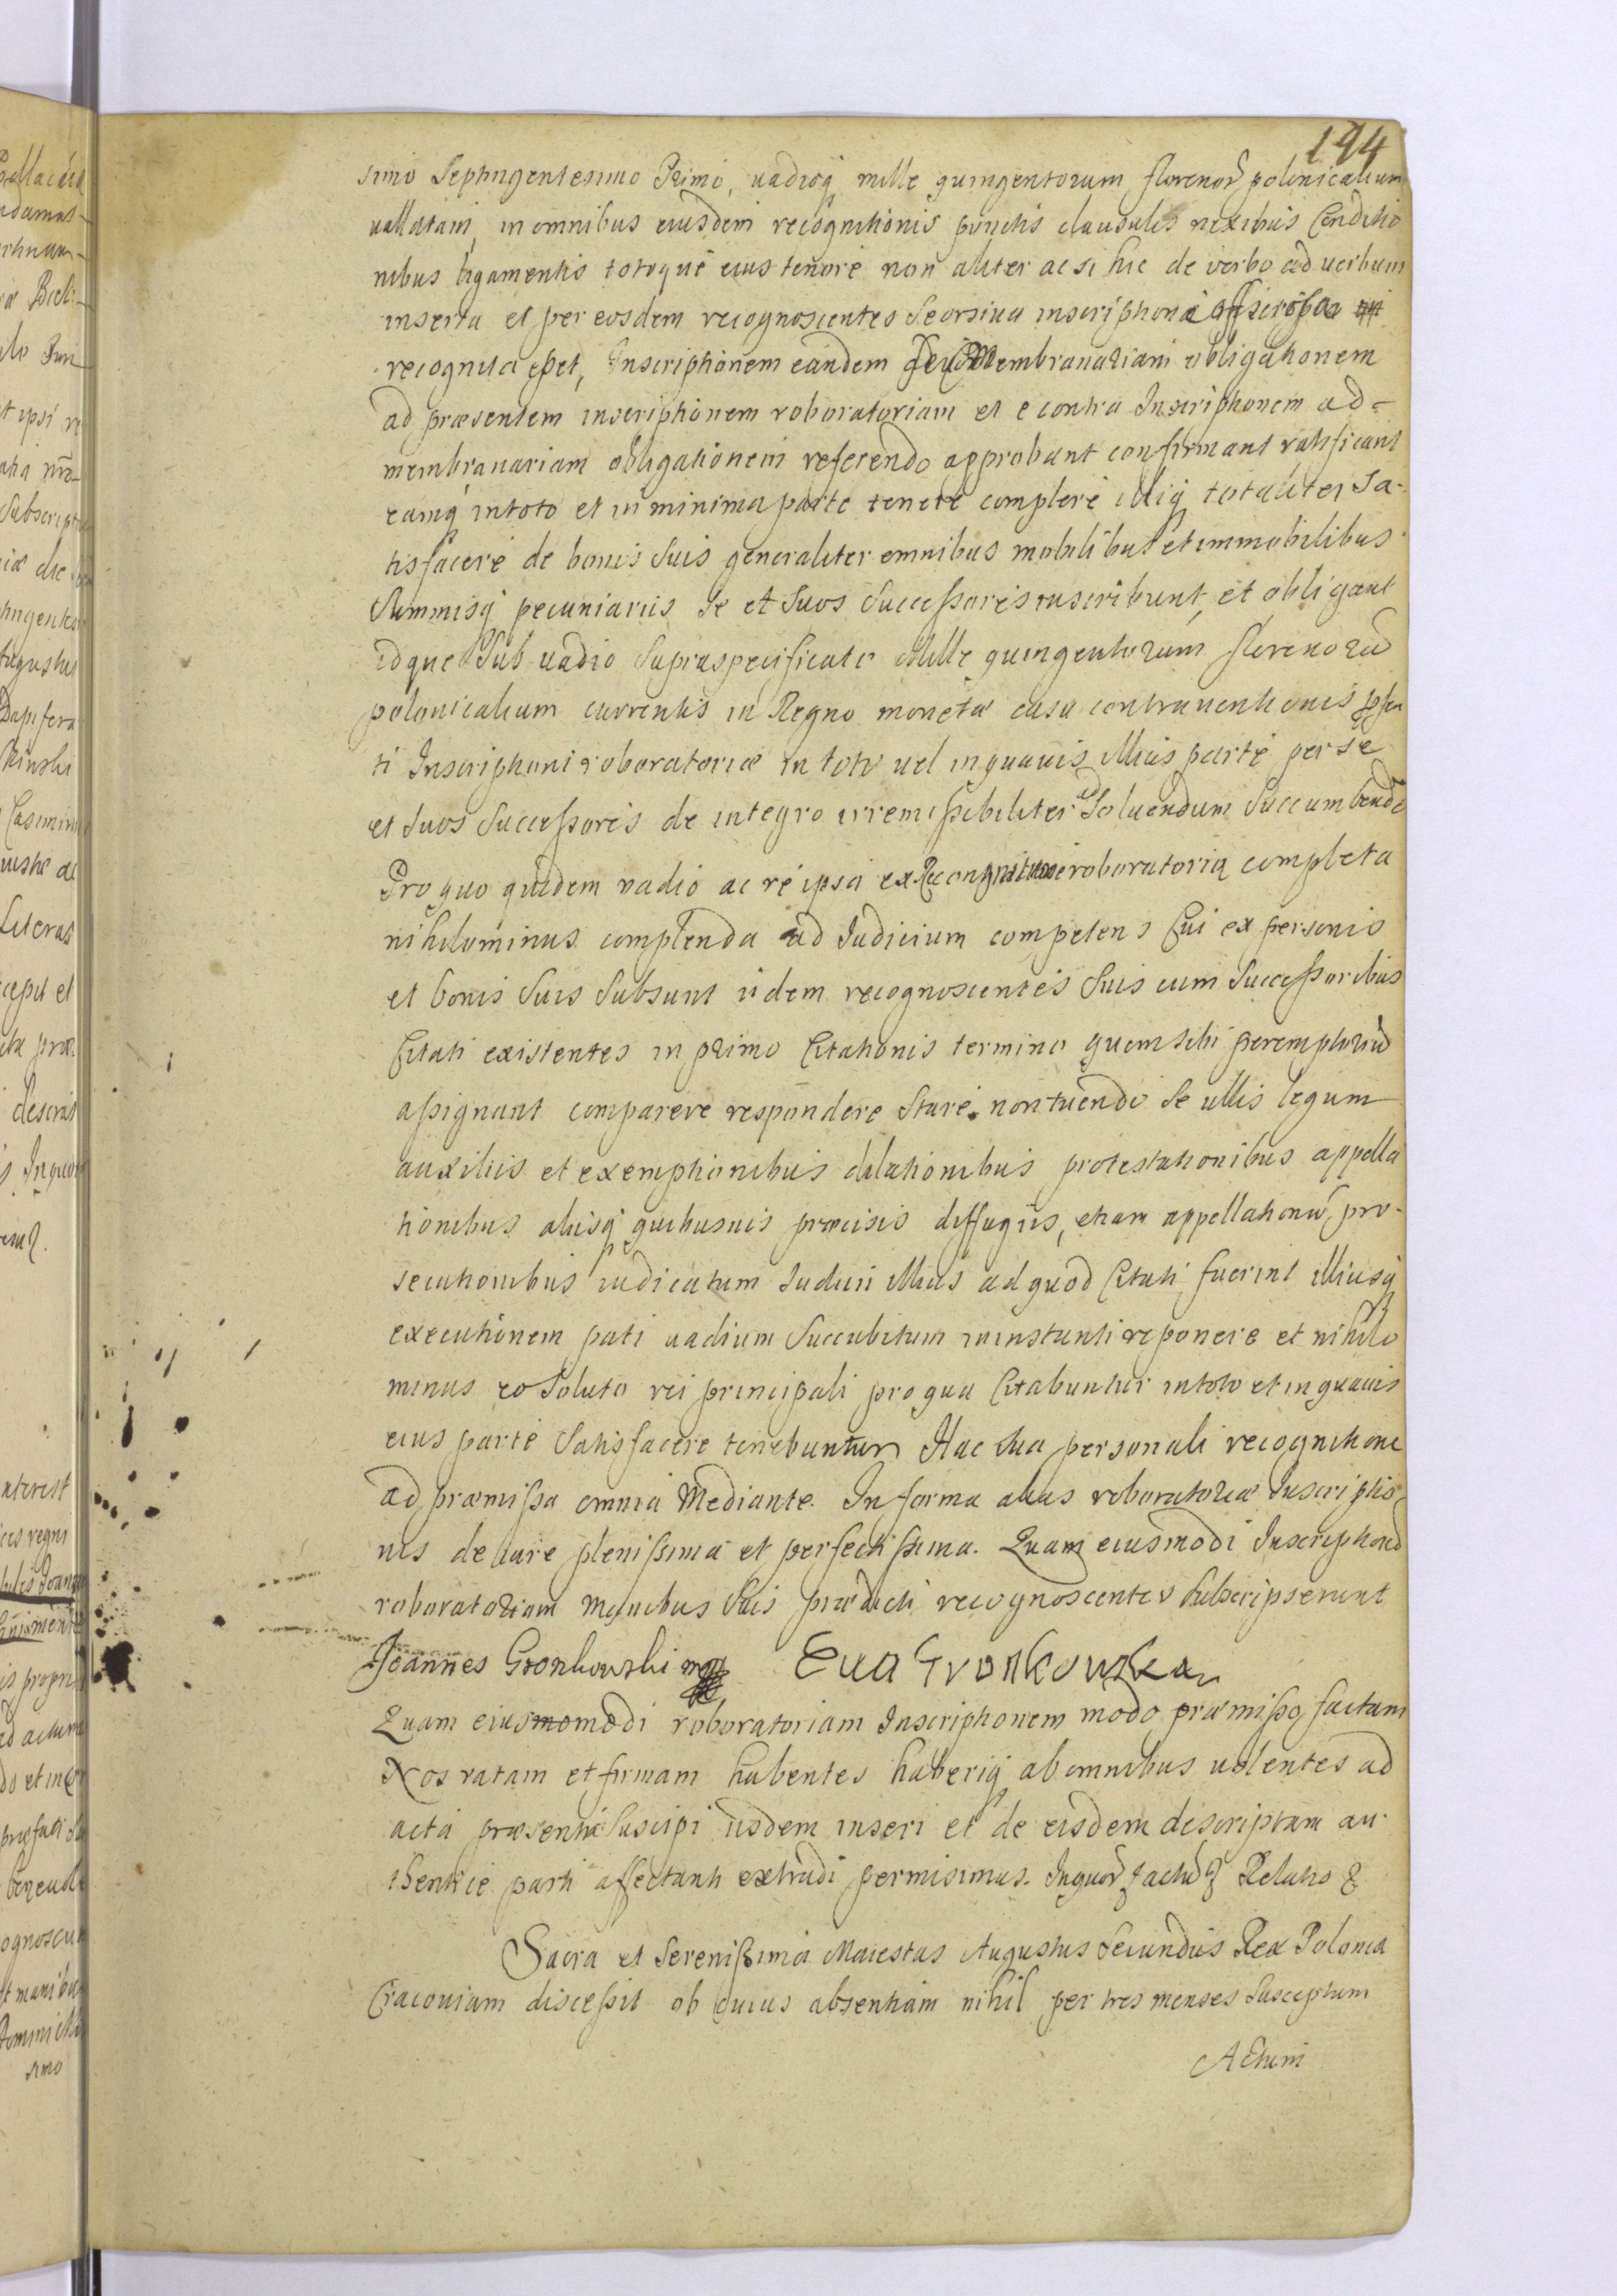 194
simo Septingentesimo Primo, vadioq mille quingentorum florenor polonicalium
vallatam, in omnibus eiusdem recognitionis punctis clausulis nexibus Conditio
nibus ligamentis totoque eius tenore non aliter ac si hic de verbo ad verbum
inserta et per eosdem recognoscentes Seorsiva inscriptione
recognita esset, Inscriptionem eandem seu Membranariam obligationem
ad præsentem inscriptionem roboratoriam et e contra Inscriptionem ad-
membranariam obligationem referendo approbant confirmant ratificant
eamq in toto et in minima parte tenere complere illiq totaliter Sa-
tisfacere de bonis Suis generaliter omnibus mobilibus et immobilibus
Summisq pecuniariis Se et Suos Successores inscribunt, et obligant
idque Sub vadio Supraspecificato Mille quingentorum florenorū
polonicalium currentis in Regno monetæ casu contraventionis
ti Inscriptioni roboratoriæ in toto vel in quavis illius parte per se
et Suos Successores de integro irremissibiliter ad Soluendum Succumbendo
Pro quo quidem vadio ac re ipsa ex Recongnitione roboratoria completa
nihilominus complenda ad Iudicium competens Cui ex personis
et bonis Suis Subsunt iidem recognoscentes Suis cum Successoribus
Citati existentes in primo Citationis termino quem sibi peremptoriū
assignant comparere respondere Stare non tuendo Se ullis legum
auxiliis et exemptionibus dilationibus protestationibus appella
tionibus aliisq quibusvis præcisis diffugiis, etiam appellationū pro-
secutionibus iudicatum Iudicii illius ad quod Citati fuerint illiusq
executionem pati vadium Succubitum in instanti reponere et nihilo
minus eo Soluto rei principali pro qua Citabuntur in toto et in quavis
eius parte Satisfacere tenebuntur Hac Sua personali recognitione
ad præmissa omnia Mediante. In forma alias roboratoriæ Inscriptio
nis de iure plenissima et perfectissima. Quam eiusmodi Inscriptionē
roboratoriam Manibus Suis prædicti recognoscentes Subscripserunt
Joannes Gronkowski mp Eva Gronkowska
Quam eiusmomodi roboratoriam Inscriptionem modo præmisso factam
Nos ratam et firmam habentes haberiq ab omnibus volentes ad
acta præsentia Suscipi iisdem inseri et de eisdem descriptam au-
thenticè parti affectanti extradi permisimus. In quor Relatio
Sacra et Serenissima Maiestas Augustus Secundus Rex Poloniæ
Cracoviam discessit ob cuius absentiam nihil per tres menses Susceptum
Actum